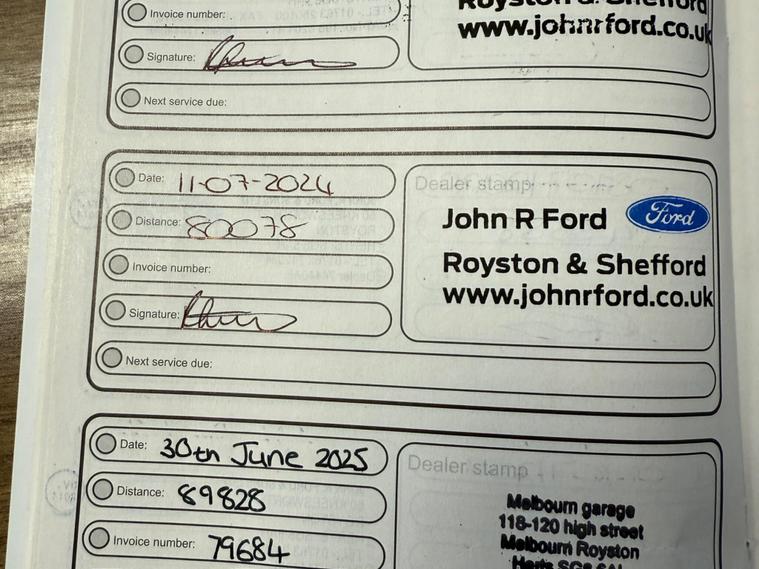 Invoice number:
Royston & Shefford
www.johnrford.co.uk
Signature:
Next service due:
Date: 11-07-2024
Dealer stamp
Distance: 80078
John R Ford Ford
Invoice number:
Royston & Shefford
www.johnrford.co.uk
Signature:
Next service due:
Date: 30th June 2025
Dealer stamp
Distance: 89828
Melbourn garage
118-120 high street
Invoice number: 79684
Melbourn Royston
Herts SG8